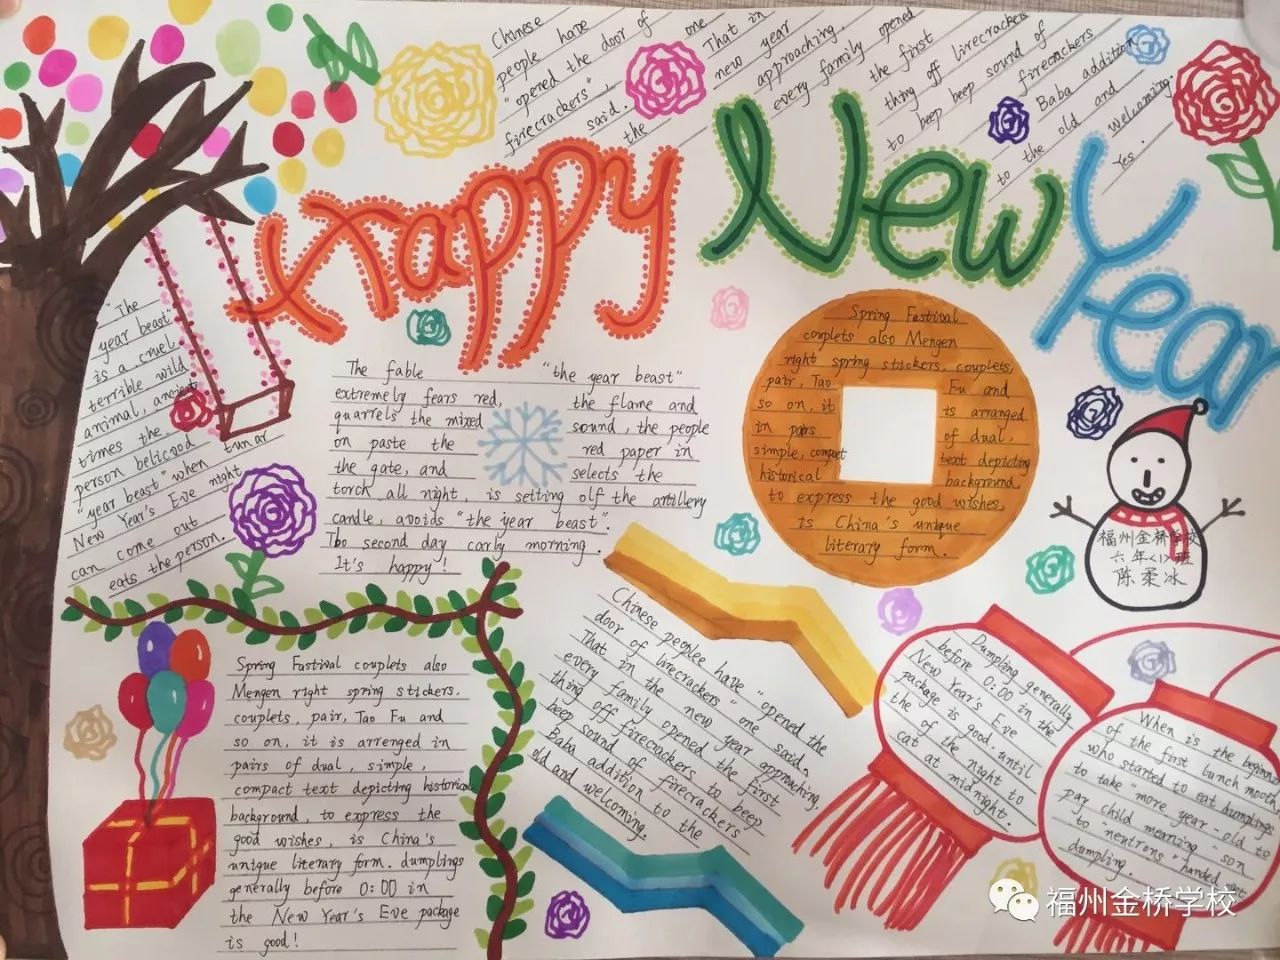 Chinese
people have
"opened the door of
firecrackers", one
said. That in
the new year
approaching,
every family opened
the first
thing off firecrackers
to beep beep sound of
firecrackers
Baba addition
to the old and
welcoming.
Yes.
Happy New Year
"The
year beast"
is a cruel
terrible wild
animal, ancient
times the
person beliecod
"year beast" when tunar
New Year's Eve night
can come out
eats the person.
The fable "the year beast"
extremely fears red, the flame and
quarrels the mixed sound, the people
on paste the red paper in
the gate, and selects the
torch all night, is setting olf the artillery
candle, avoids "the year beast".
Tbo second day carby morning.
It's happy!
Spring Festival
couplets also Mengen
right spring stickers, couplets,
pair, Tao Fu and
so on, it is arranged
in pairs of dual,
simple, compact text depicting
historical background,
to express the good wishes,
is China's unique
literary form.
福州金桥学校
六年<1>班
陈柔冰
Spring Festival couplets also
Mengen right spring stickers.
couplets, pair, Tao Fu and
so on, it is arrenged in
pairs of dual, simple,
compact text depicting historical
background, to express the
good wishes, is China's
unique literary form. dumplings
generally before 0:00 in
the New Year's Eve package
is good!
Chinese peoplee have "opened the
door of lirecrackers" one said.
That in the new year approaching,
every family opened the first
thing off firecrackers to beep
beep sound of firecrackers
Baba addition to the
old and welcoming.
Dumpling generally
before 0:00 in the
New Year's Eve
package is good. until
the of the night to
cat at midnight.
When is the beginning
of the first lunch mooth
who started to eat dumplings
to take "more year-old to
pay child meaning "son
to "neutrons" handed
dumpling.
福州金桥学校